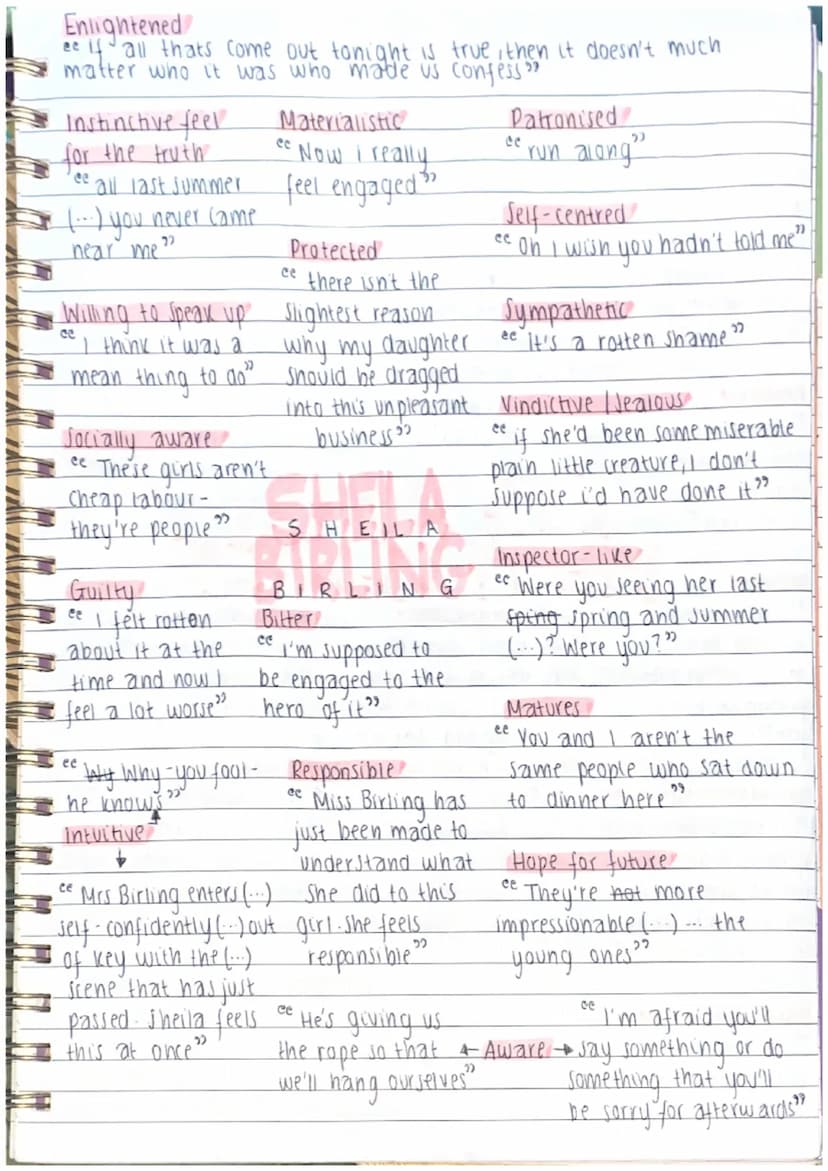 Enlightened
“If all thats come out tonight is true, then it doesn't much
matter who it was who made us confess”
Instinctive feel
for the truth
“all last summer
(...) you never came
near me”
Willing to speak up
“I think it was a
mean thing to do”
Socially aware
“These girls aren't
cheap labour -
they're people”
Guilty
“I felt rotten
about it at the
time and now I
feel a lot worse”
“Wy Why -you fool-
he knows”
Intuitive
“Mrs Birling enters (...)
self-confidently (...) out
of key with the (...)
scene that has just
passed. Sheila feels
this at once”
Materialistic
“Now i really
feel engaged”
Protected
“there isn't the
slightest reason
why my daughter
should be dragged
into this unpleasant
business”
SHEILA
BIRLING
SHEILA
BIRLING
Bitter
“i'm supposed to
be engaged to the
hero of it”
Responsible
“Miss Birling has
just been made to
understand what
she did to this
girl. She feels
responsible”
“He's giving us
the rope so that
we'll hang ourselves”
Patronised
“run along”
Self-centred
“Oh I wish you hadn't told me”
Sympathetic
“it's a rotten shame”
Vindictive / Jealous
“if she'd been some miserable
plain little creature, I don't
suppose i'd have done it”
Inspector-like
“Were you seeing her last
sping spring and summer
(...)? Were you?”
Matures
“You and I aren't the
same people who sat down
to dinner here”
Hope for future
“They're not more
impressionable (...) ... the
young ones”
← Aware →
“I'm afraid you'll
say something or do
something that you'll
be sorry for afterwards”